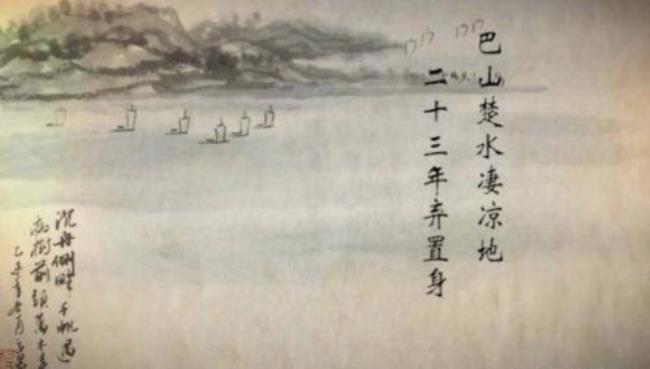 巴山楚水凄凉地
二十三年弃置身
沉舟侧畔千帆过
病树前头万木春